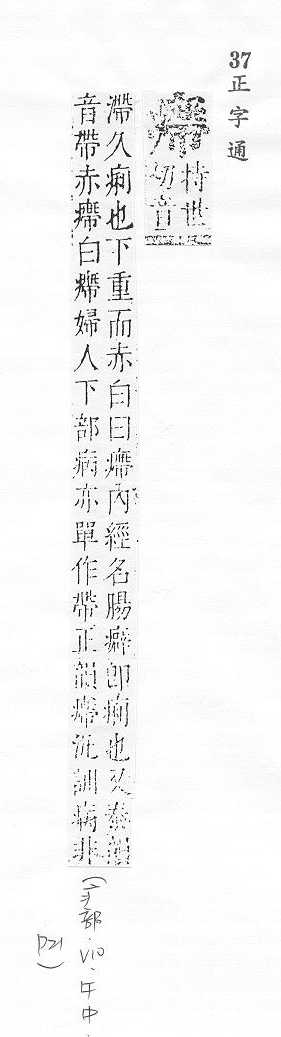 37
正字通
㿃
特世
切音
滯久痢也下重而赤白曰㿃內經名腸癖卽痢也又泰韻
音帶赤㿃白㿃婦人下部病亦單作帶正韻㿃汎訓病非
(疒部.V10.午中.
P21)